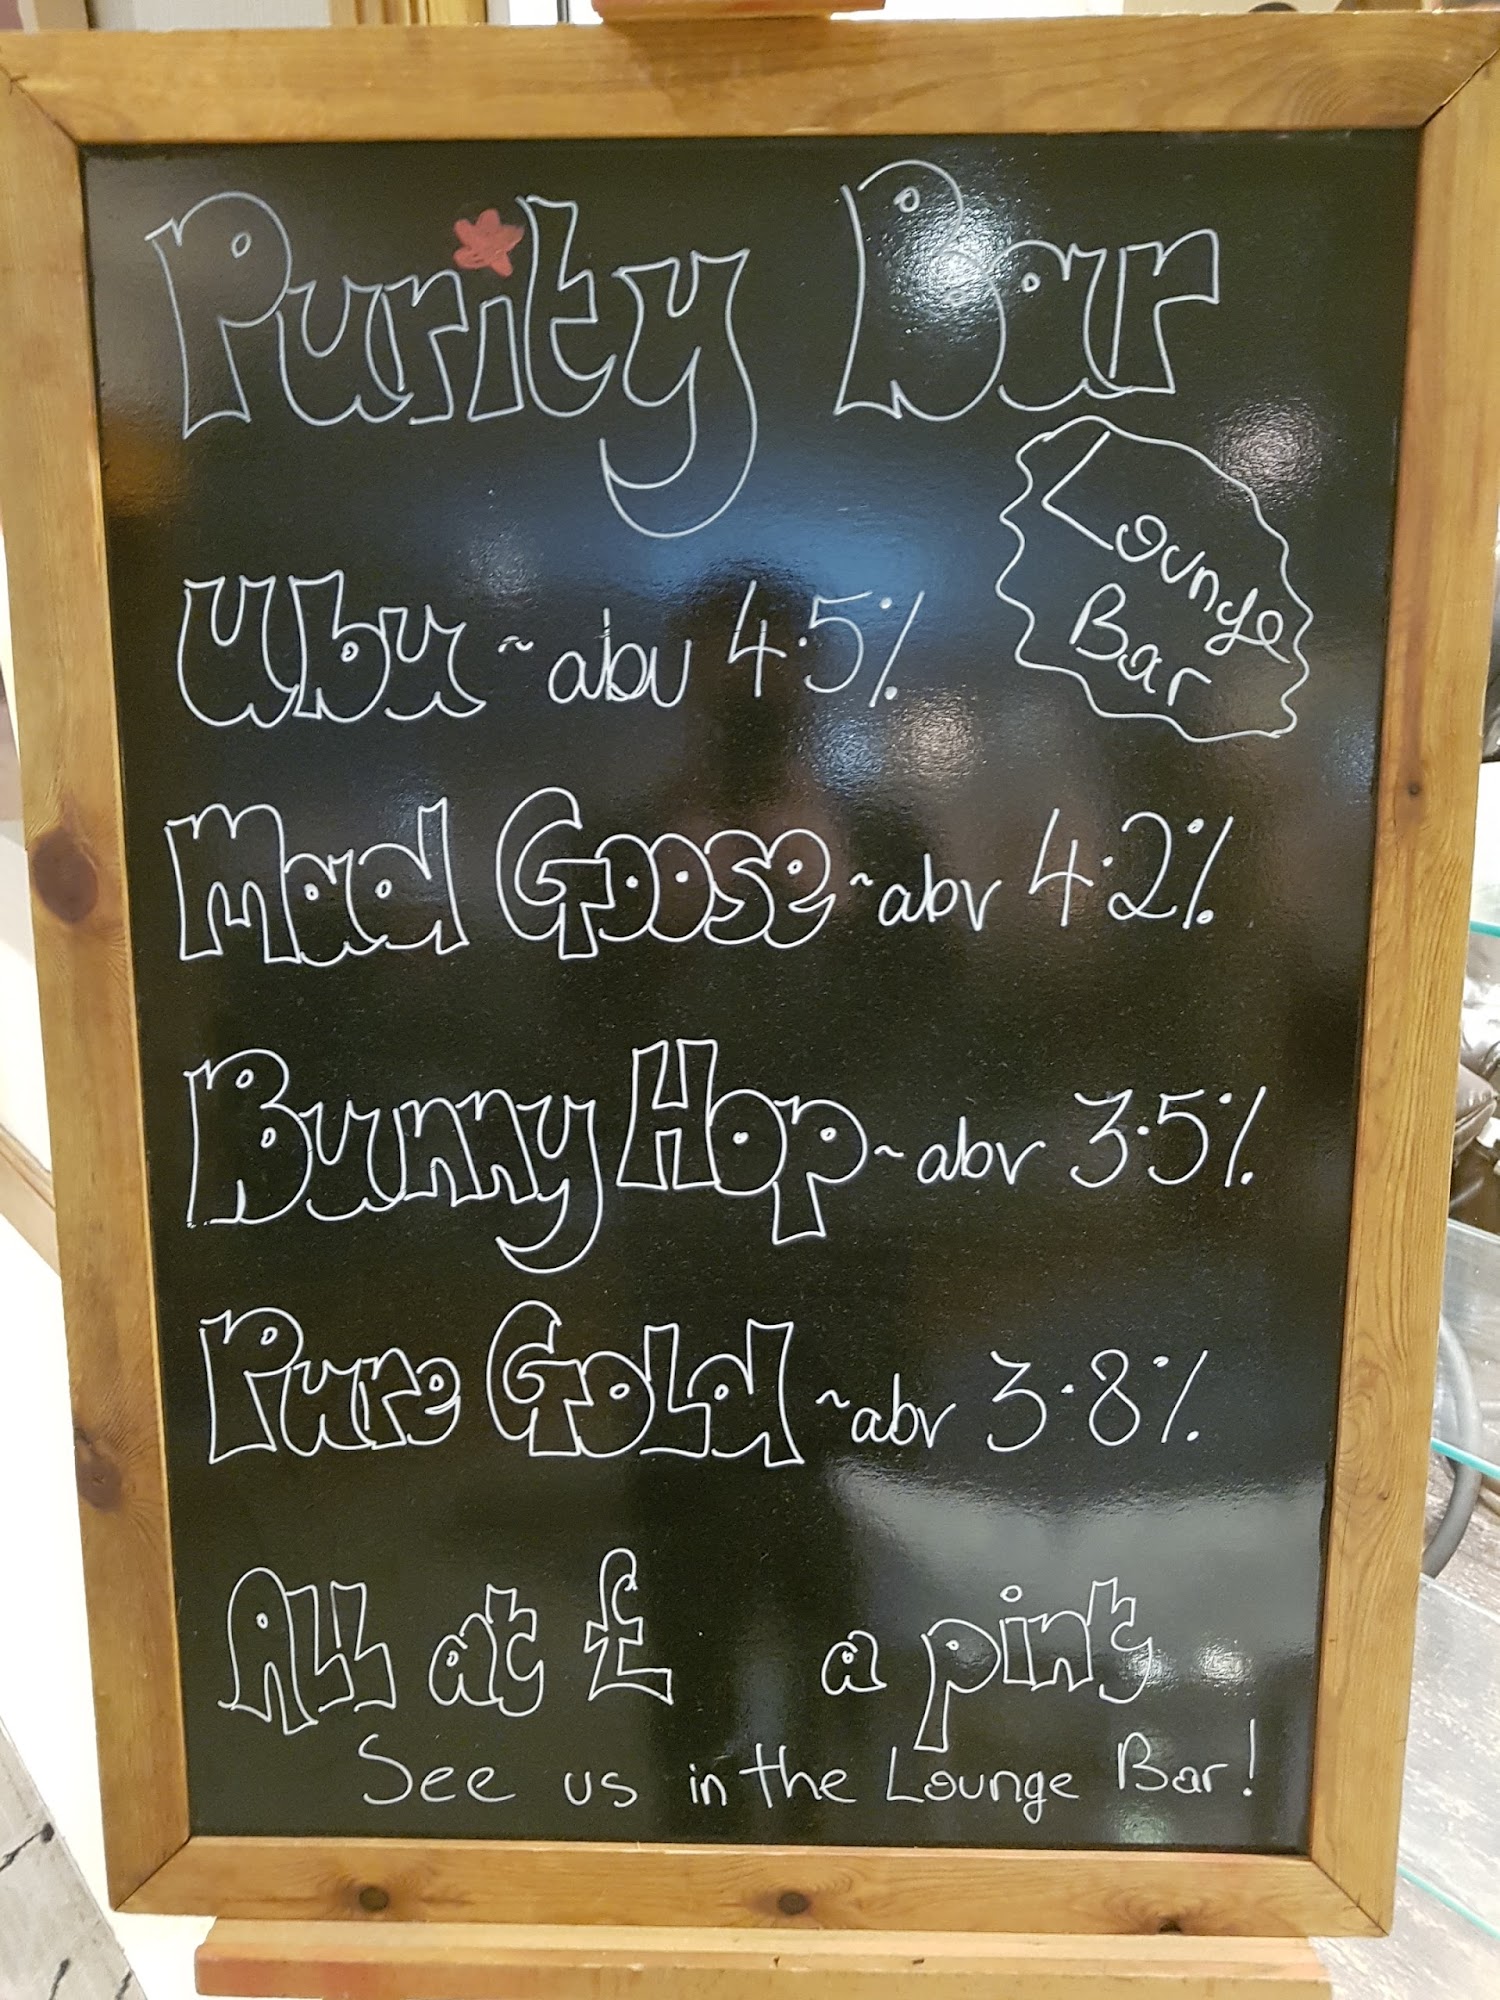 Purity Bar
Lounge
Bar
Ubu ~ abv 4.5%
Mad Goose ~ abv 4.2%
Bunny Hop ~ abv 3.5%
Pure Gold ~ abv 3.8%
All at £ a pint
See us in the Lounge Bar!